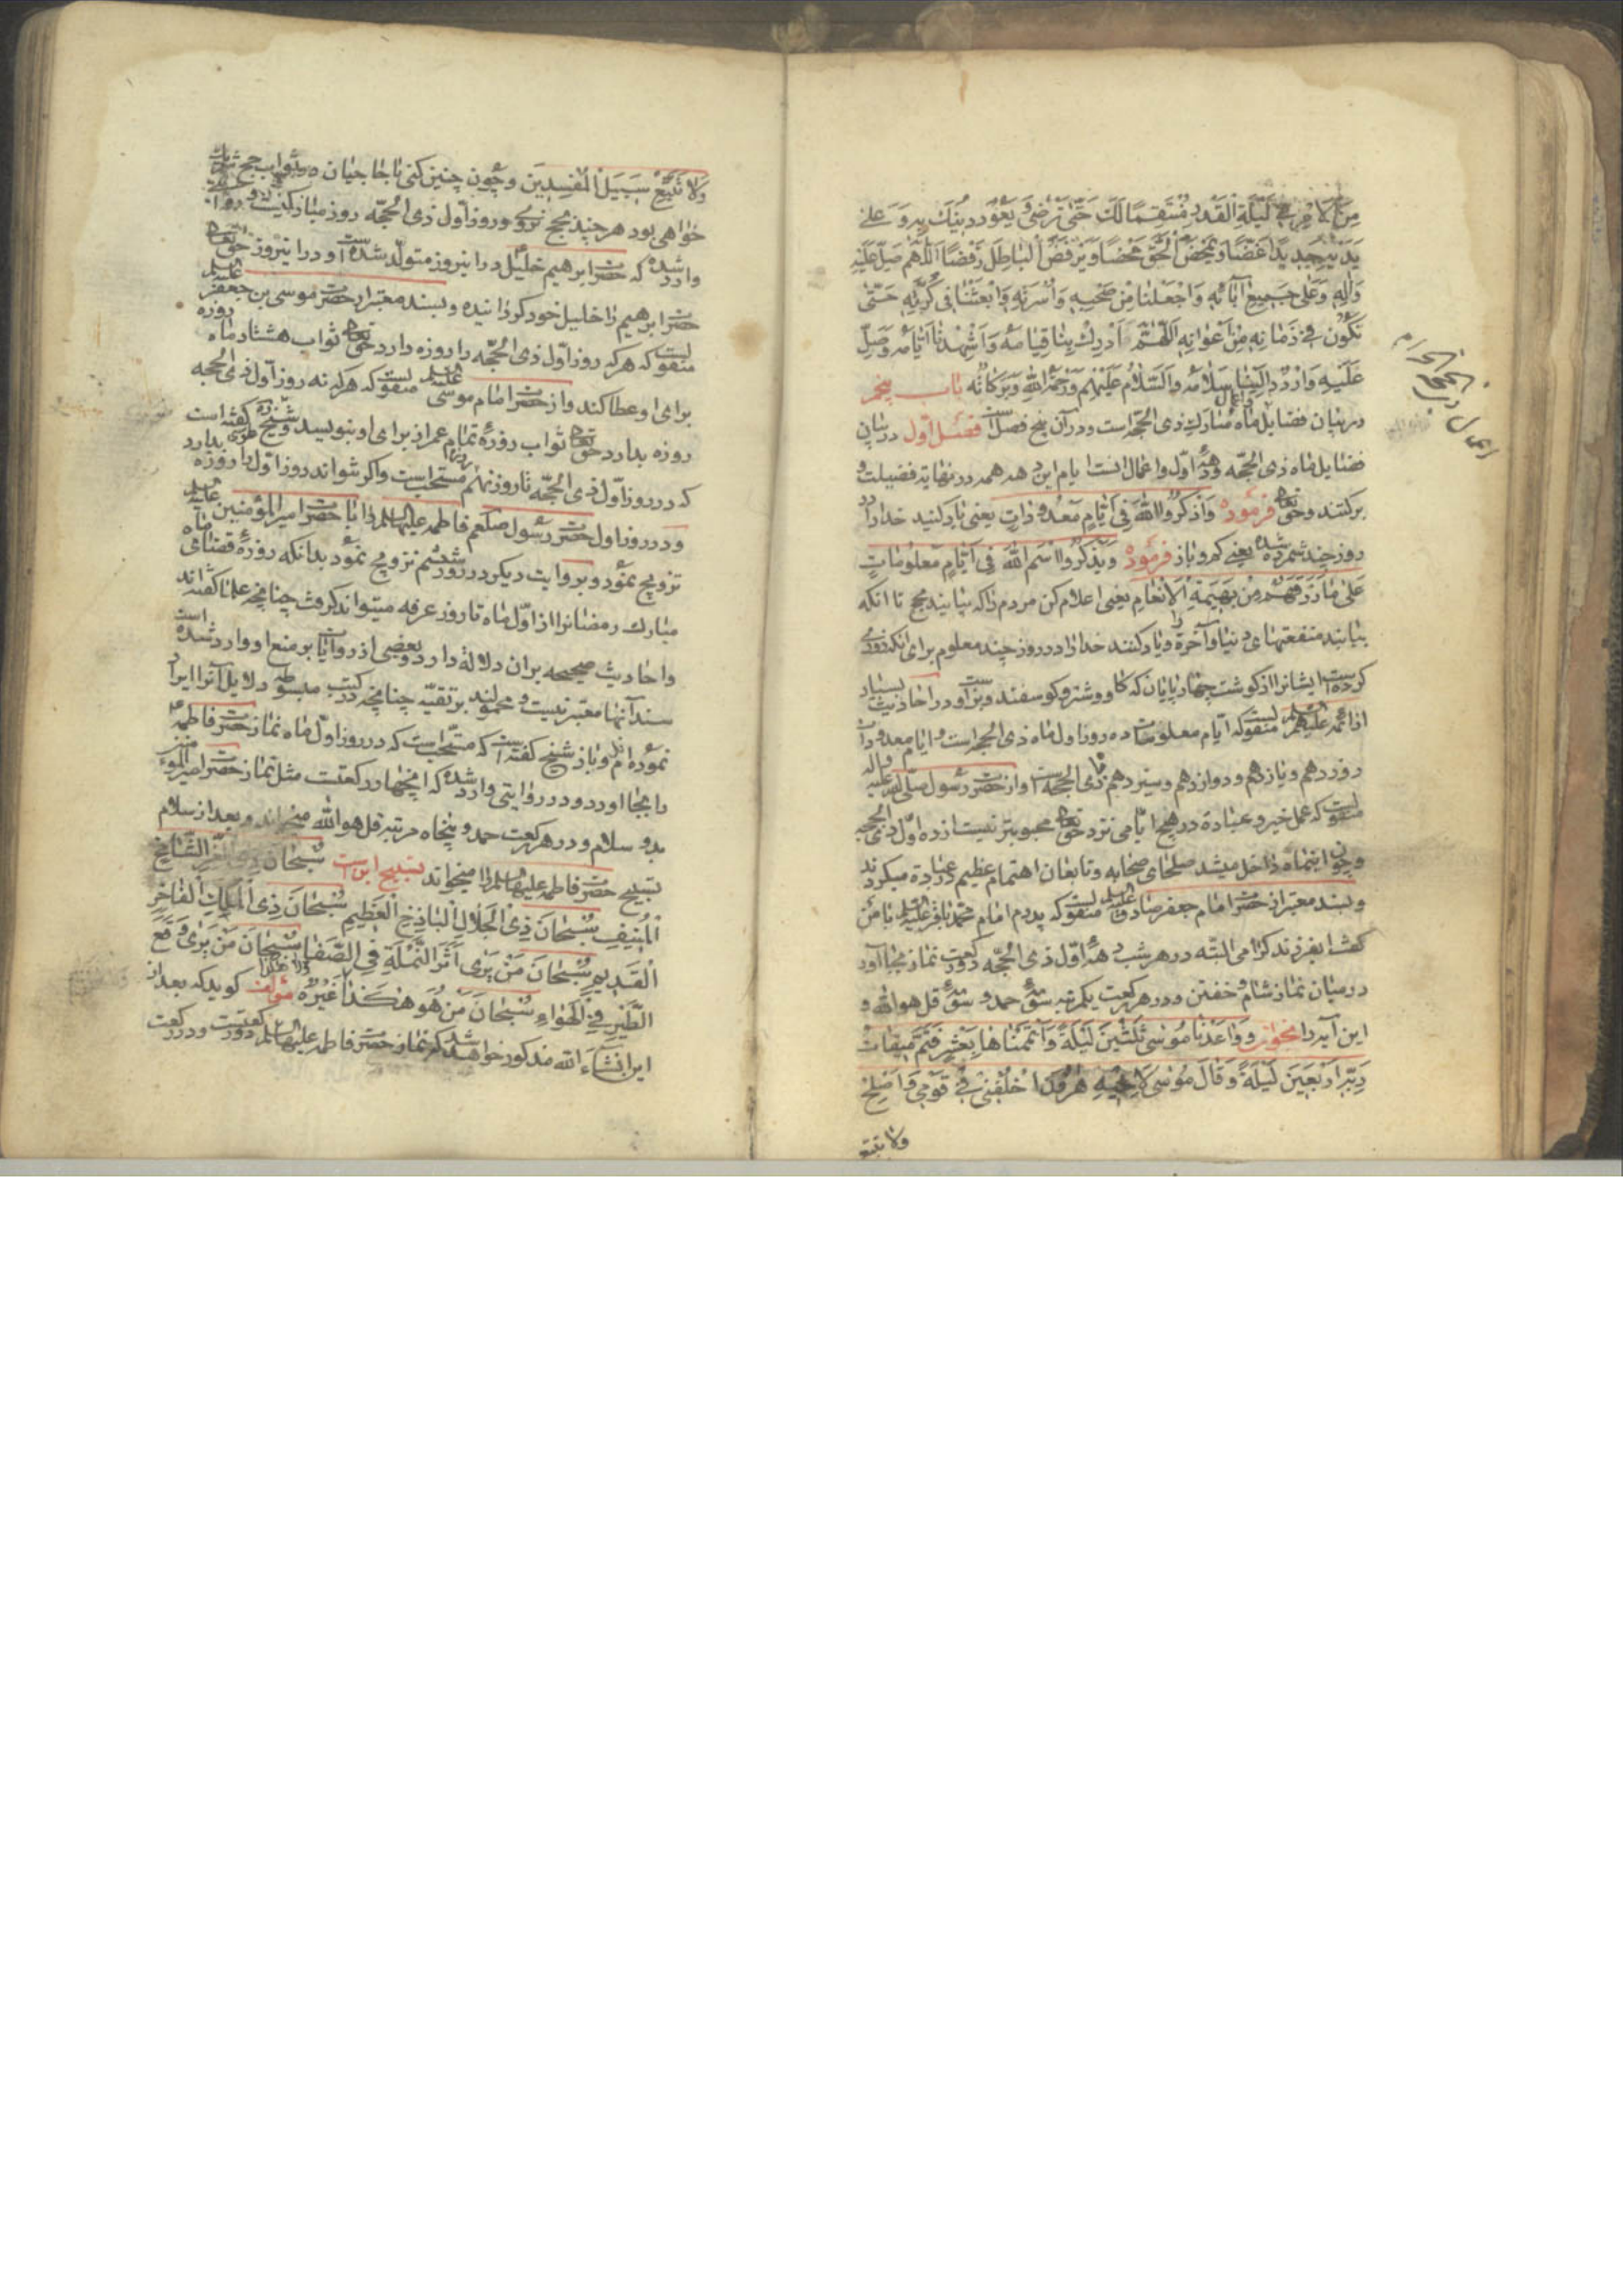 مِنَ الْاَمْرِ فِی لَیْلَةِ الْقَدْرِ مُنْتَقِمًا لَکَ حَتّٰی تَرْضٰی وَ یَعُوْدَ دِیْنُکَ بِهِ وَ عَلٰی
یَدَیْهِ جَدِیْدًا غَضًّا وَ یَمْحَضَ الْحَقَّ مَحْضًا وَ یَرْفَضَ الْبَاطِلَ رَفْضًا اَللّٰهُمَّ صَلِّ عَلَیْهِ
وَ اٰلِهِ وَ عَلٰی جَمِیْعِ اٰبَائِهِ وَ اجْعَلْنَا مِنْ صَحْبِهِ وَ اُسْرَتِهِ وَ ابْعَثْنَا فِی کَرَّتِهِ حَتّٰی
نَکُوْنَ فِی زَمَانِهِ مِنْ اَعْوَانِهِ اَللّٰهُمَّ اَدْرِکْ بِنَا قِیَامَهُ وَ اَشْهِدْنَا اَیَّامَهُ وَ صَلِّ
عَلَیْهِ وَ ارْدُدْ اِلَیْنَا سَلَامَهُ وَ السَّلَامُ عَلَیْهِمْ وَ رَحْمَةُ اللّٰهِ وَ بَرَکَاتُهُ باب پنجم
در بیان فضایل و اعمال ماه مبارک ذی الحجه است و در آن پنج فصل است فصل اول در بیان
فضایل ماه ذی الحجه و دهۀ اول و اعمال انست ایام این دهه همه در نهایة فضیلت و
برکتند و حق تعالی فرموده وَ اذْکُرُوا اللّٰهَ فِی اَیَّامٍ مَعْدُوْدَاتٍ یعنی یاد کنید خدا را در
روز چند شمرده شده یعنی کم و باز فرموده وَ یَذْکُرُوا اسْمَ اللّٰهِ فِی اَیَّامٍ مَعْلُوْمَاتٍ
عَلٰی مَا رَزَقَهُمْ مِنْ بَهِیْمَةِ الْاَنْعَامِ یعنی اعلام کن مردم را که بیایند بحج تا انکه
بیابند منفعتهای دنیا و آخرة را و یاد کنند خدا را در روز چند معلوم برای انکه روزی
کرده است ایشانرا از کوشت چهارپایان که کاو و شتر و کوسفند و بز است و در احادیث بسیار
از ائمه علیهم السلم منقولست که ایام معلومات ده روز اول ماه ذی الحجه است و ایام معدودات
روز دهم و یازدهم و دوازدهم و سیزدهم ماه ذی الحجه است و از حضرت رسول صلی الله علیه و اله
منقولست که عمل خیر و عبادة در هیچ ایامی نزد حق تعالی محبوبتر نیست از ده اول ذی الحجه
و چون اینماه داخل میشد صلحای صحابه و تابعان اهتمام عظیم در عبادة میکردند
و بسند معتبر از حضرت امام جعفر صادق علیه السلم منقولست که پدرم امام محمد باقر علیه السلم با من
کفت ایفرزند کرامی البته در هر شب دهۀ اول ذی الحجه دو رکعت نماز بجا آور
در میان نماز شام و خفتن و در هر رکعت یکمرتبه سورۀ حمد و سورۀ قل هو الله و
این آیه را بخوان وَ وَاعَدْنَا مُوْسٰی ثَلٰثِیْنَ لَیْلَةً وَ اَتْمَمْنَاهَا بِعَشْرٍ فَتَمَّ مِیْقَاتُ
رَبِّهِ اَرْبَعِیْنَ لَیْلَةً وَ قَالَ مُوْسٰی لِاَخِیْهِ هٰرُوْنَ اخْلُفْنِیْ فِیْ قَوْمِیْ وَ اَصْلِحْ
ولا تتبع
وَ لَا تَتَّبِعْ سَبِیْلَ الْمُفْسِدِیْنَ و چون چنین کنی با حاجیان در ثواب حج شریک
خواهی بود هر چند بحج نروی و روز اول ذی الحجه روز مبارکیست و در روایة
وارد شده که حضرت ابرهیم خلیل در اینروز متولد شده است و در اینروز حق تعالی
حضرت ابرهیم را خلیل خود کردانیده و بسند معتبر از حضرت موسی بن جعفر علیه السلم
منقولست که هر که روز اول ذی الحجه را روزه دارد حق تعالی ثواب هشتاد ماه روزه
برای او عطا کند و از حضرت امام موسی علیه السلم منقولست که هر که نه روز اول ذی الحجه
روزه بدارد حق تعالی ثواب روزۀ تمام عمر از برای او بنویسد و شیخ طوسی کفته است
که در روز اول ذی الحجه تا روز نهم روزه مستحب است و اکر نتواند روز اول را روزه بدارد
و در روز اول حضرت رسول صلعم فاطمه علیها السلم را با حضرت امیر المؤمنین علیه السلم
تزویج نمود و بروایت دیکر در روز ششم تزویج نمود بدانکه روزۀ قضای ماه
مبارک رمضانرا از اول ماه تا روز عرفه میتواند کرفت چنانچه علما کفته اند
و احادیث صحیحه بران دلالة دارد و بعضی از روایات بر منع او وارد شده است
سند آنها معتبر نیست و محمولند بر تقیه چنانچه در کتب مبسوطه دلایل آنرا ایراد
نموده ام و باز شیخ کفته است که مستحب است که در روز اول ماه نماز حضرت فاطمه
را بجا اورد و در روایتی وارد شده که انچهار رکعتست مثل نماز حضرت امیر المؤمنین
بدو سلام و در هر رکعت حمد و پنجاه مرتبه قل هو الله میخواند و بعد از سلام
تسبیح حضرت فاطمه علیها السلم را میخواند تسبیح این است سُبْحَانَ ذِی الْعِزِّ الشَّامِخِ
الْمُنِیْفِ سُبْحَانَ ذِی الْجَلَالِ الْبَاذِخِ الْعَظِیْمِ سُبْحَانَ ذِی الْمُلْکِ الْفَاخِرِ
الْقَدِیْمِ سُبْحَانَ مَنْ یَرٰی اَثَرَ النَّمْلَةِ فِی الصَّفَا سُبْحَانَ مَنْ یَرٰی وَقْعَ
الطَّیْرِ فِی الْهَوَاءِ سُبْحَانَ مَنْ هُوَ هٰکَذَا وَ لَا هٰکَذَا غَیْرُهُ مؤلف کوید که بعد از
این انشاء الله مذکور خواهد شد که نماز حضرت فاطمه علیها السلم دو رکعتست و در رکعت